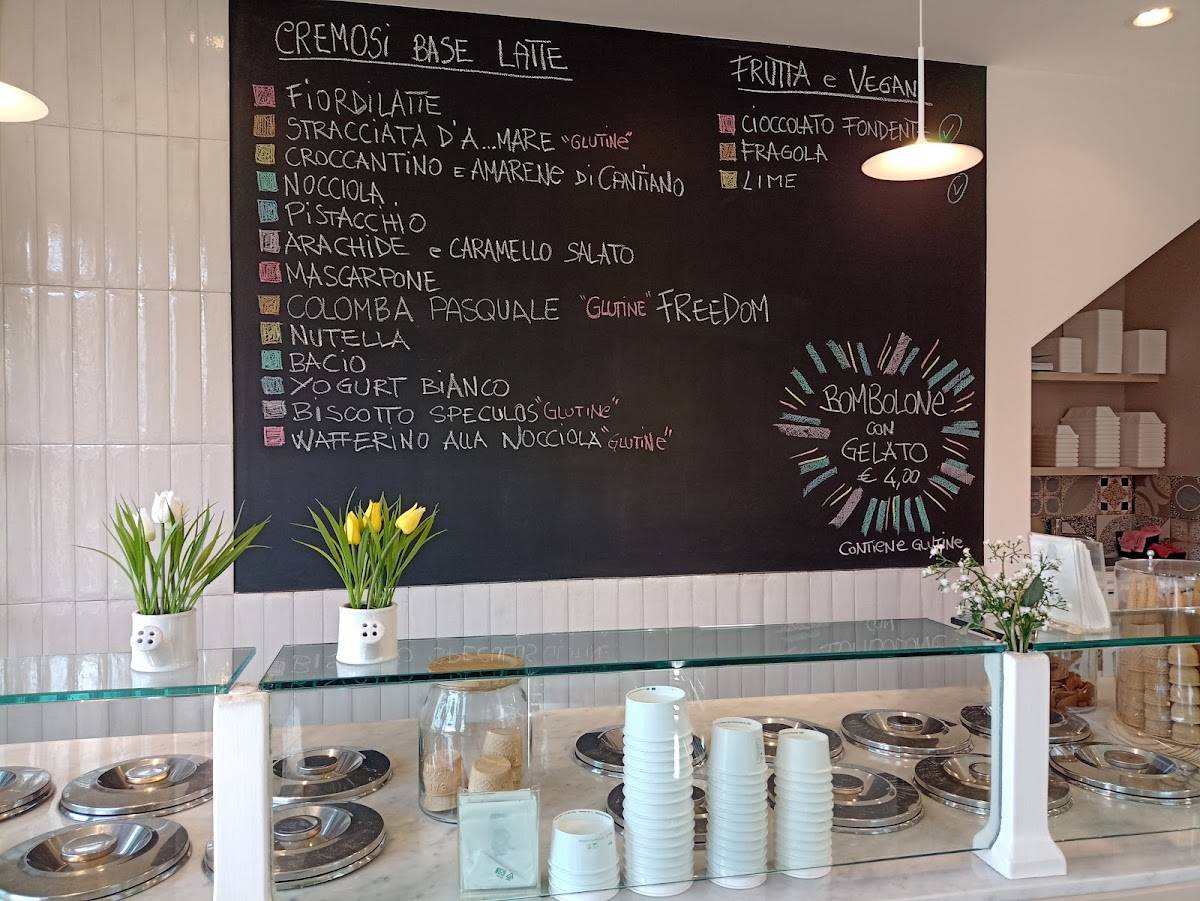 CREMOSI BASE LATTE
FIORDILATTE
STRACCIATA D'A...MARE "GLUTINE"
CROCCANTINO E AMARENE DI CANTIANO
NOCCIOLA
PISTACCHIO
ARACHIDE e CARAMELLO SALATO
MASCARPONE
COLOMBA PASQUALE "GLUTINE" FREEDOM
NUTELLA
BACIO
YOGURT BIANCO
BISCOTTO SPECULOS "GLUTINE"
WAFFERINO ALLA NOCCIOLA "GLUTINE"
FRUTTA e VEGAN
CIOCCOLATO FONDENTE V
FRAGOLA
LIME V
BOMBOLONE
CON
GELATO
€ 4,00
CONTIENE GLUTINE